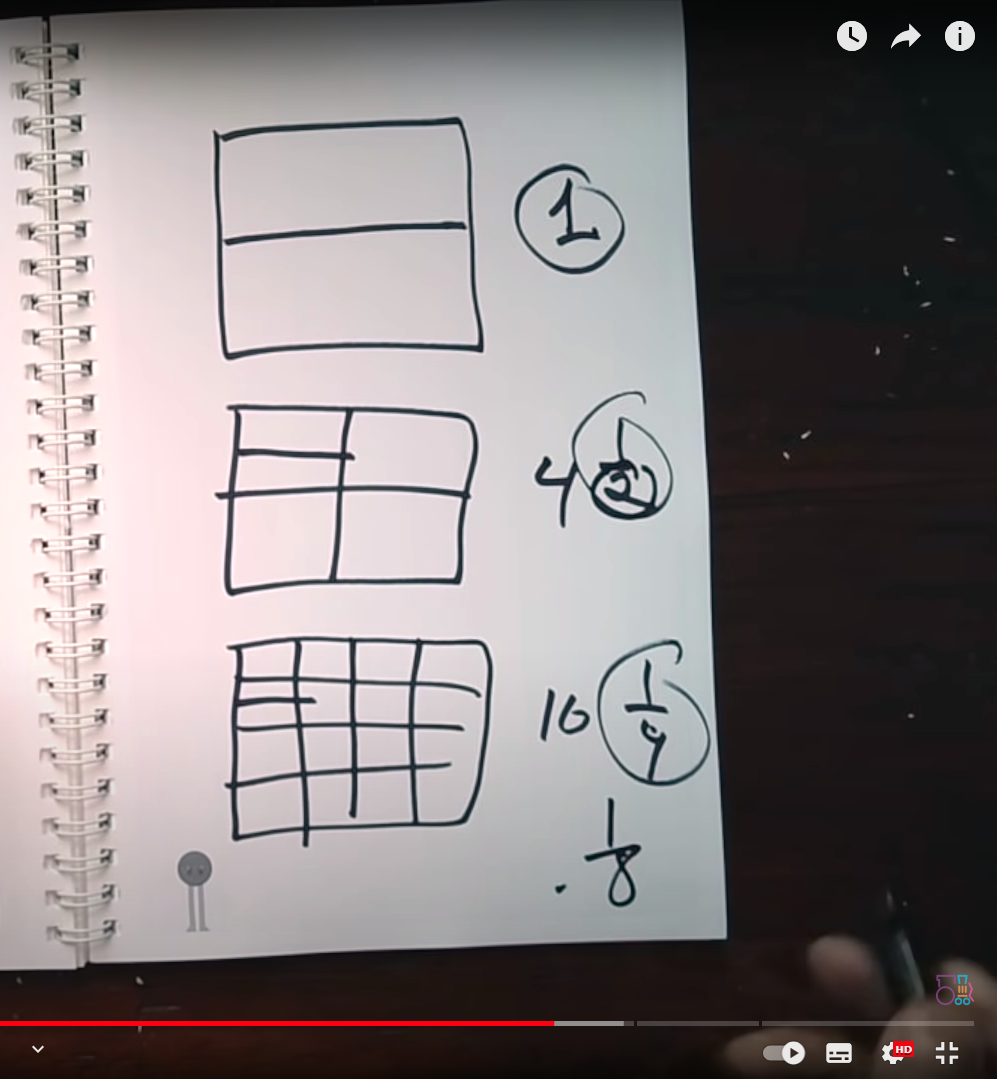 1
4 1/2
16 1/4
. 1/8
HD